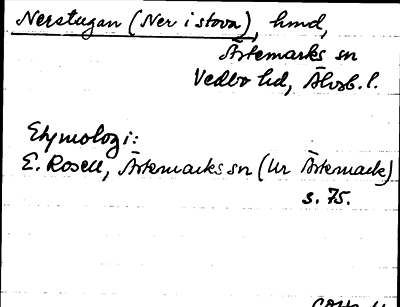 Nerstugan (Ner i stova), hmd,
Ärtemarks sn
Vedbo hd, Älvsb. l.
Etymologi:
E. Rosell, Ärtemarks sn (ur Ärtemark)
s. 75.